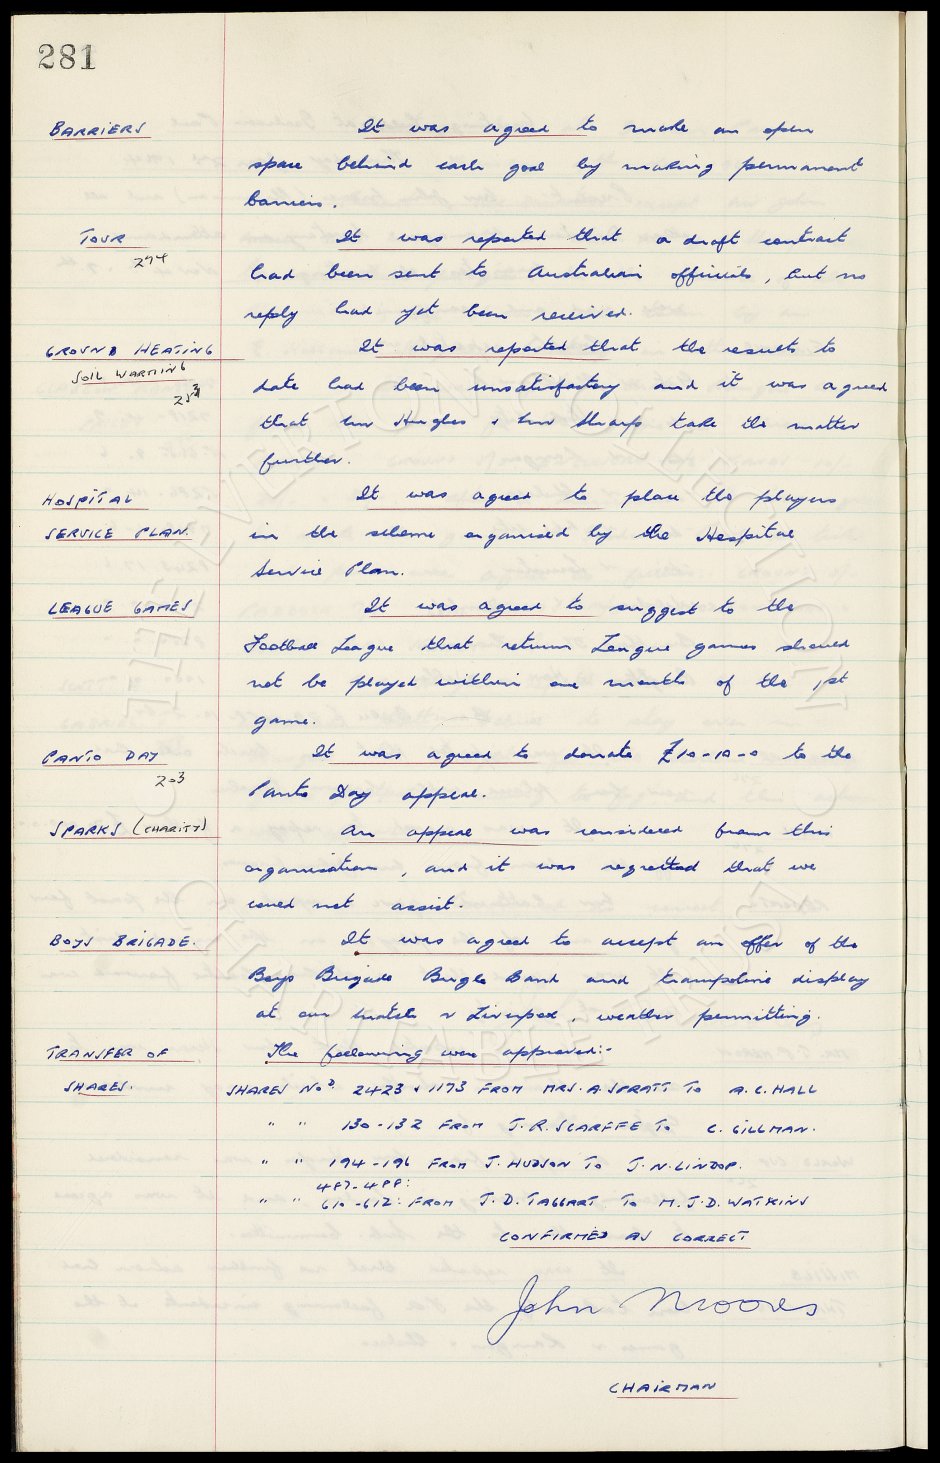 281
BARRIERS
It was agreed to make an open
space behind each goal by making permanent
barriers.
TOUR
274
It was reported that a draft contract
had been sent to Australian officials, but no
reply had yet been received.
GROUND HEATING
SOIL WARMING
253
It was reported that the results to
date had been unsatisfactory and it was agreed
that Mr Hughes & Mr Sharp take the matter
further.
HOSPITAL
SERVICE PLAN.
It was agreed to place the players
in the scheme organised by the Hospital
Service Plan.
LEAGUE GAMES
It was agreed to suggest to the
Football League that return League games should
not be played within one month of the 1st
game.
PANTO DAY
203
It was agreed to donate £10-10-0 to the
Panto Day appeal.
SPARKS (CHARITY)
An appeal was considered from this
organisation, and it was regretted that we
could not assist.
BOYS BRIGADE.
It was agreed to accept an offer of the
Boys Brigade Bugle Band and trampoline display
at our match v Liverpool, weather permitting.
TRANSFER OF
SHARES.
The following were approved:-
SHARES Nos 2423 & 1173 FROM MRS. A. SPRATT TO A.C. HALL
" " 130-132 FROM J.R. SCARFFE TO C. GILLMAN.
" " 194-196 FROM J. HUDSON TO J.N. LINDOP.
487-488:
" " 610-612: FROM J.D. TAGGART TO M.J.D. WATKINS
CONFIRMED AS CORRECT
John Moores
CHAIRMAN